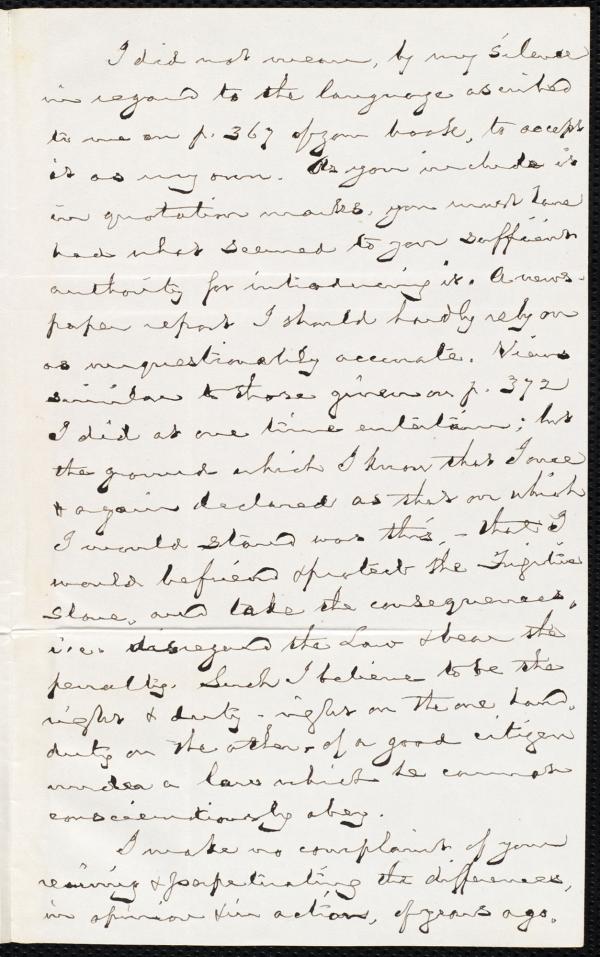 I did not mean, by my silence
in regard to the language ascribed
to me on p. 367 of your book, to accept
it as my own. As you include it
in quotation marks, you must have
had what seemed to you sufficient
authority for introducing it. A news-
paper report I should hardly rely on
as unquestionably accurate. Views
similar to those given on p. 372
I did at one time entertain; but
the ground which I know that I once
& again declared as that on which
I would stand was this, - that I
would befriend & protect the Fugitive
Slave, and take the consequences,
i.e. disregard the Law & bear the
penalty. Such I believe to be the
right & duty - right on the one hand,
duty on the other, - of a good citizen
under a law which he cannot
conscientiously obey.
I make no complaint of your
reviving & perpetuating the differences,
in opinion & in action, of years ago.